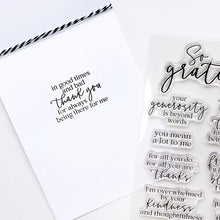 in good times
and bad
thank you
for always
being there for me
So
grat
your
generosity
is beyond
words
you mean
a lot to me
for all you do,
for all you are
thanks
I'm overwhelmed
by your
kindness
and thoughtfulness